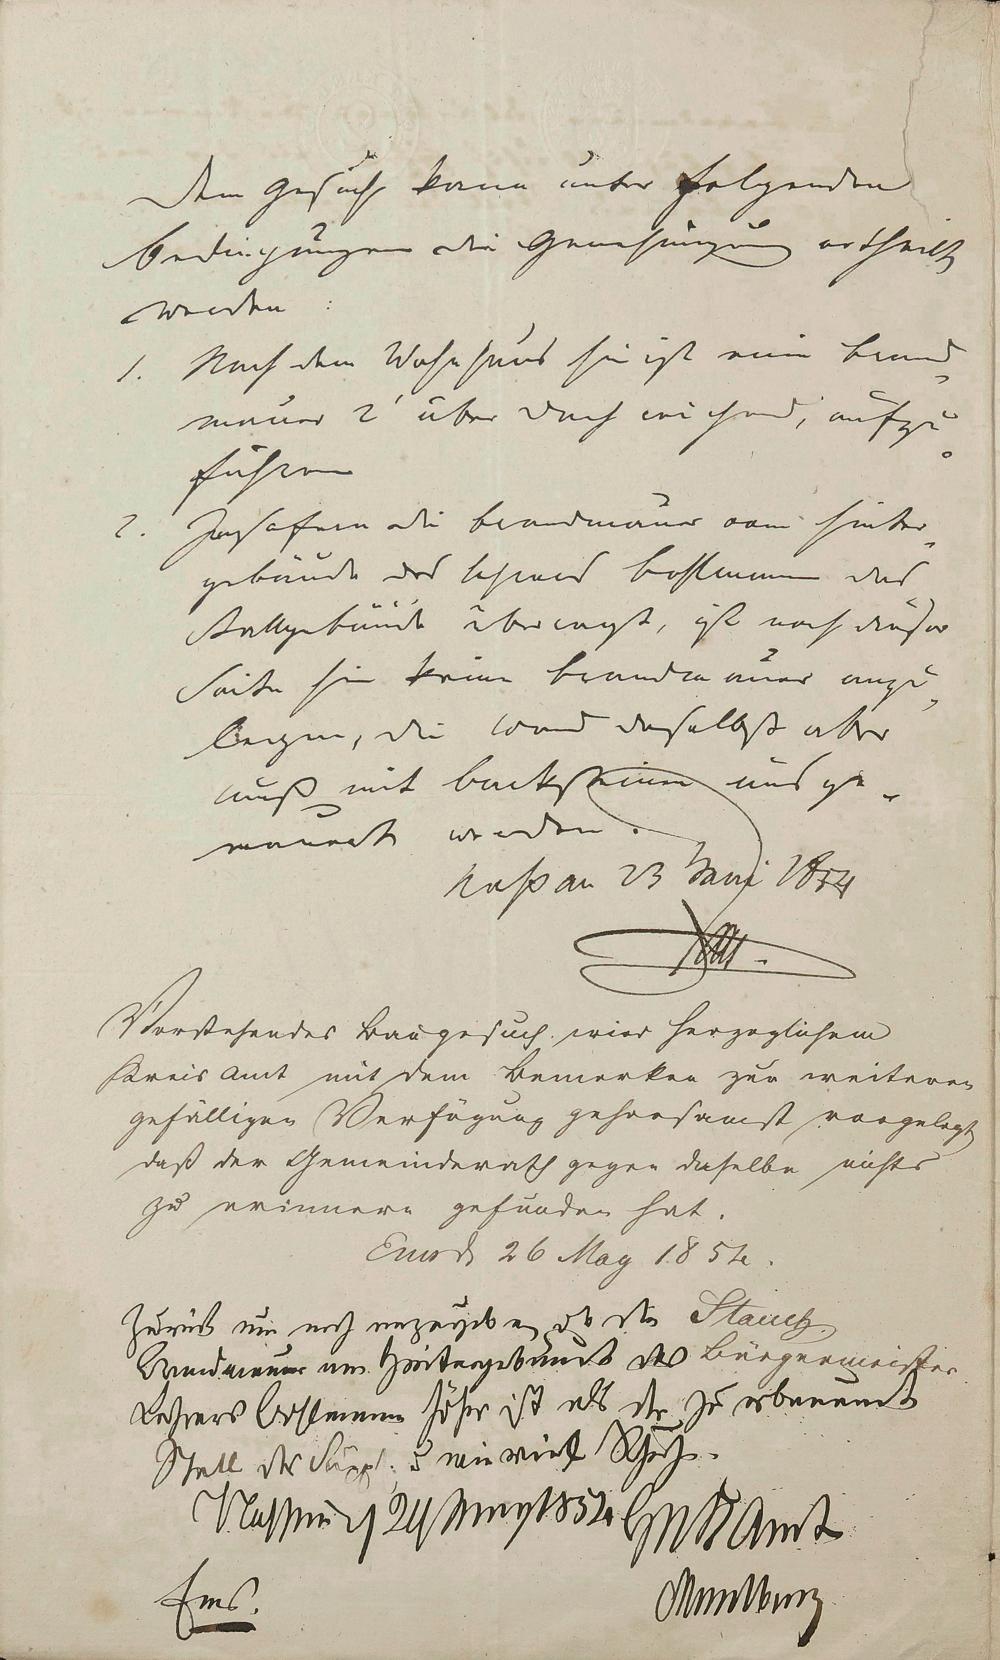 Dem Gesuch kann unter folgenden
Bedingungen die Genehmigung ertheilt
werden:
1. Nach dem Wohnhaus hin ist eine Brand-
mauer 2' über Dach reichend, aufzu-
führen
2. Insofern die Brandmauer vom Hinter-
gebäude des Lehrers Bohlmann das
Stallgebäude überragt, ist nach dieser
Seite hin keine Brandmauer anzu-
legen, die Wand daselbst aber
muß mit Backsteinen ausge-
mauert werden.
Nassau 23 Juni 1854
Vorstehendes Baugesuch wird Herzoglichem
Kreisamt mit dem Bemerken zur weiteren
gefälligen Verfügung gehorsamst vorgelegt
daß der Gemeinderath gegen daselbe nichts
zu erinnern gefunden hat.
Ems d 26 May 1854.
Zurück um noch anzugeben, ob die
Brandmauer am Hintergebäude des Bürgermeister
Lehrers Bohlmann höher ist als der zu erbauende
Stall des Suppl. u wie viel Schuh.
Nassau d 29 May 1854 Amt
Ems.